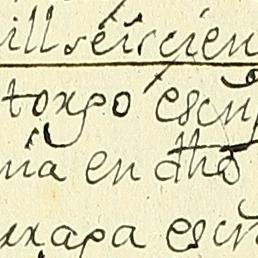 ill seiscien
toxgo escri
nia en dho
uxapa escri